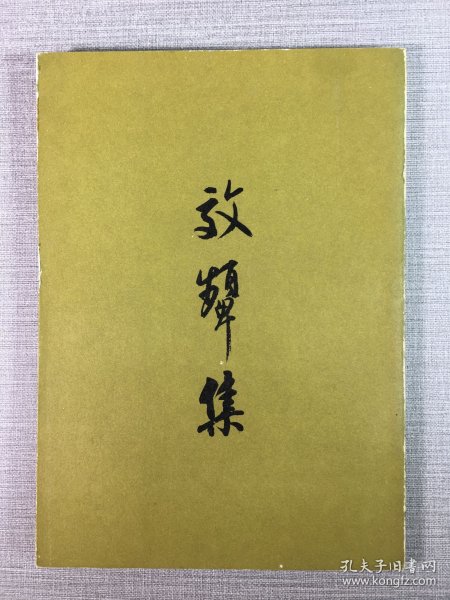 效顰集
孔夫子旧书网
www.kongfz.com